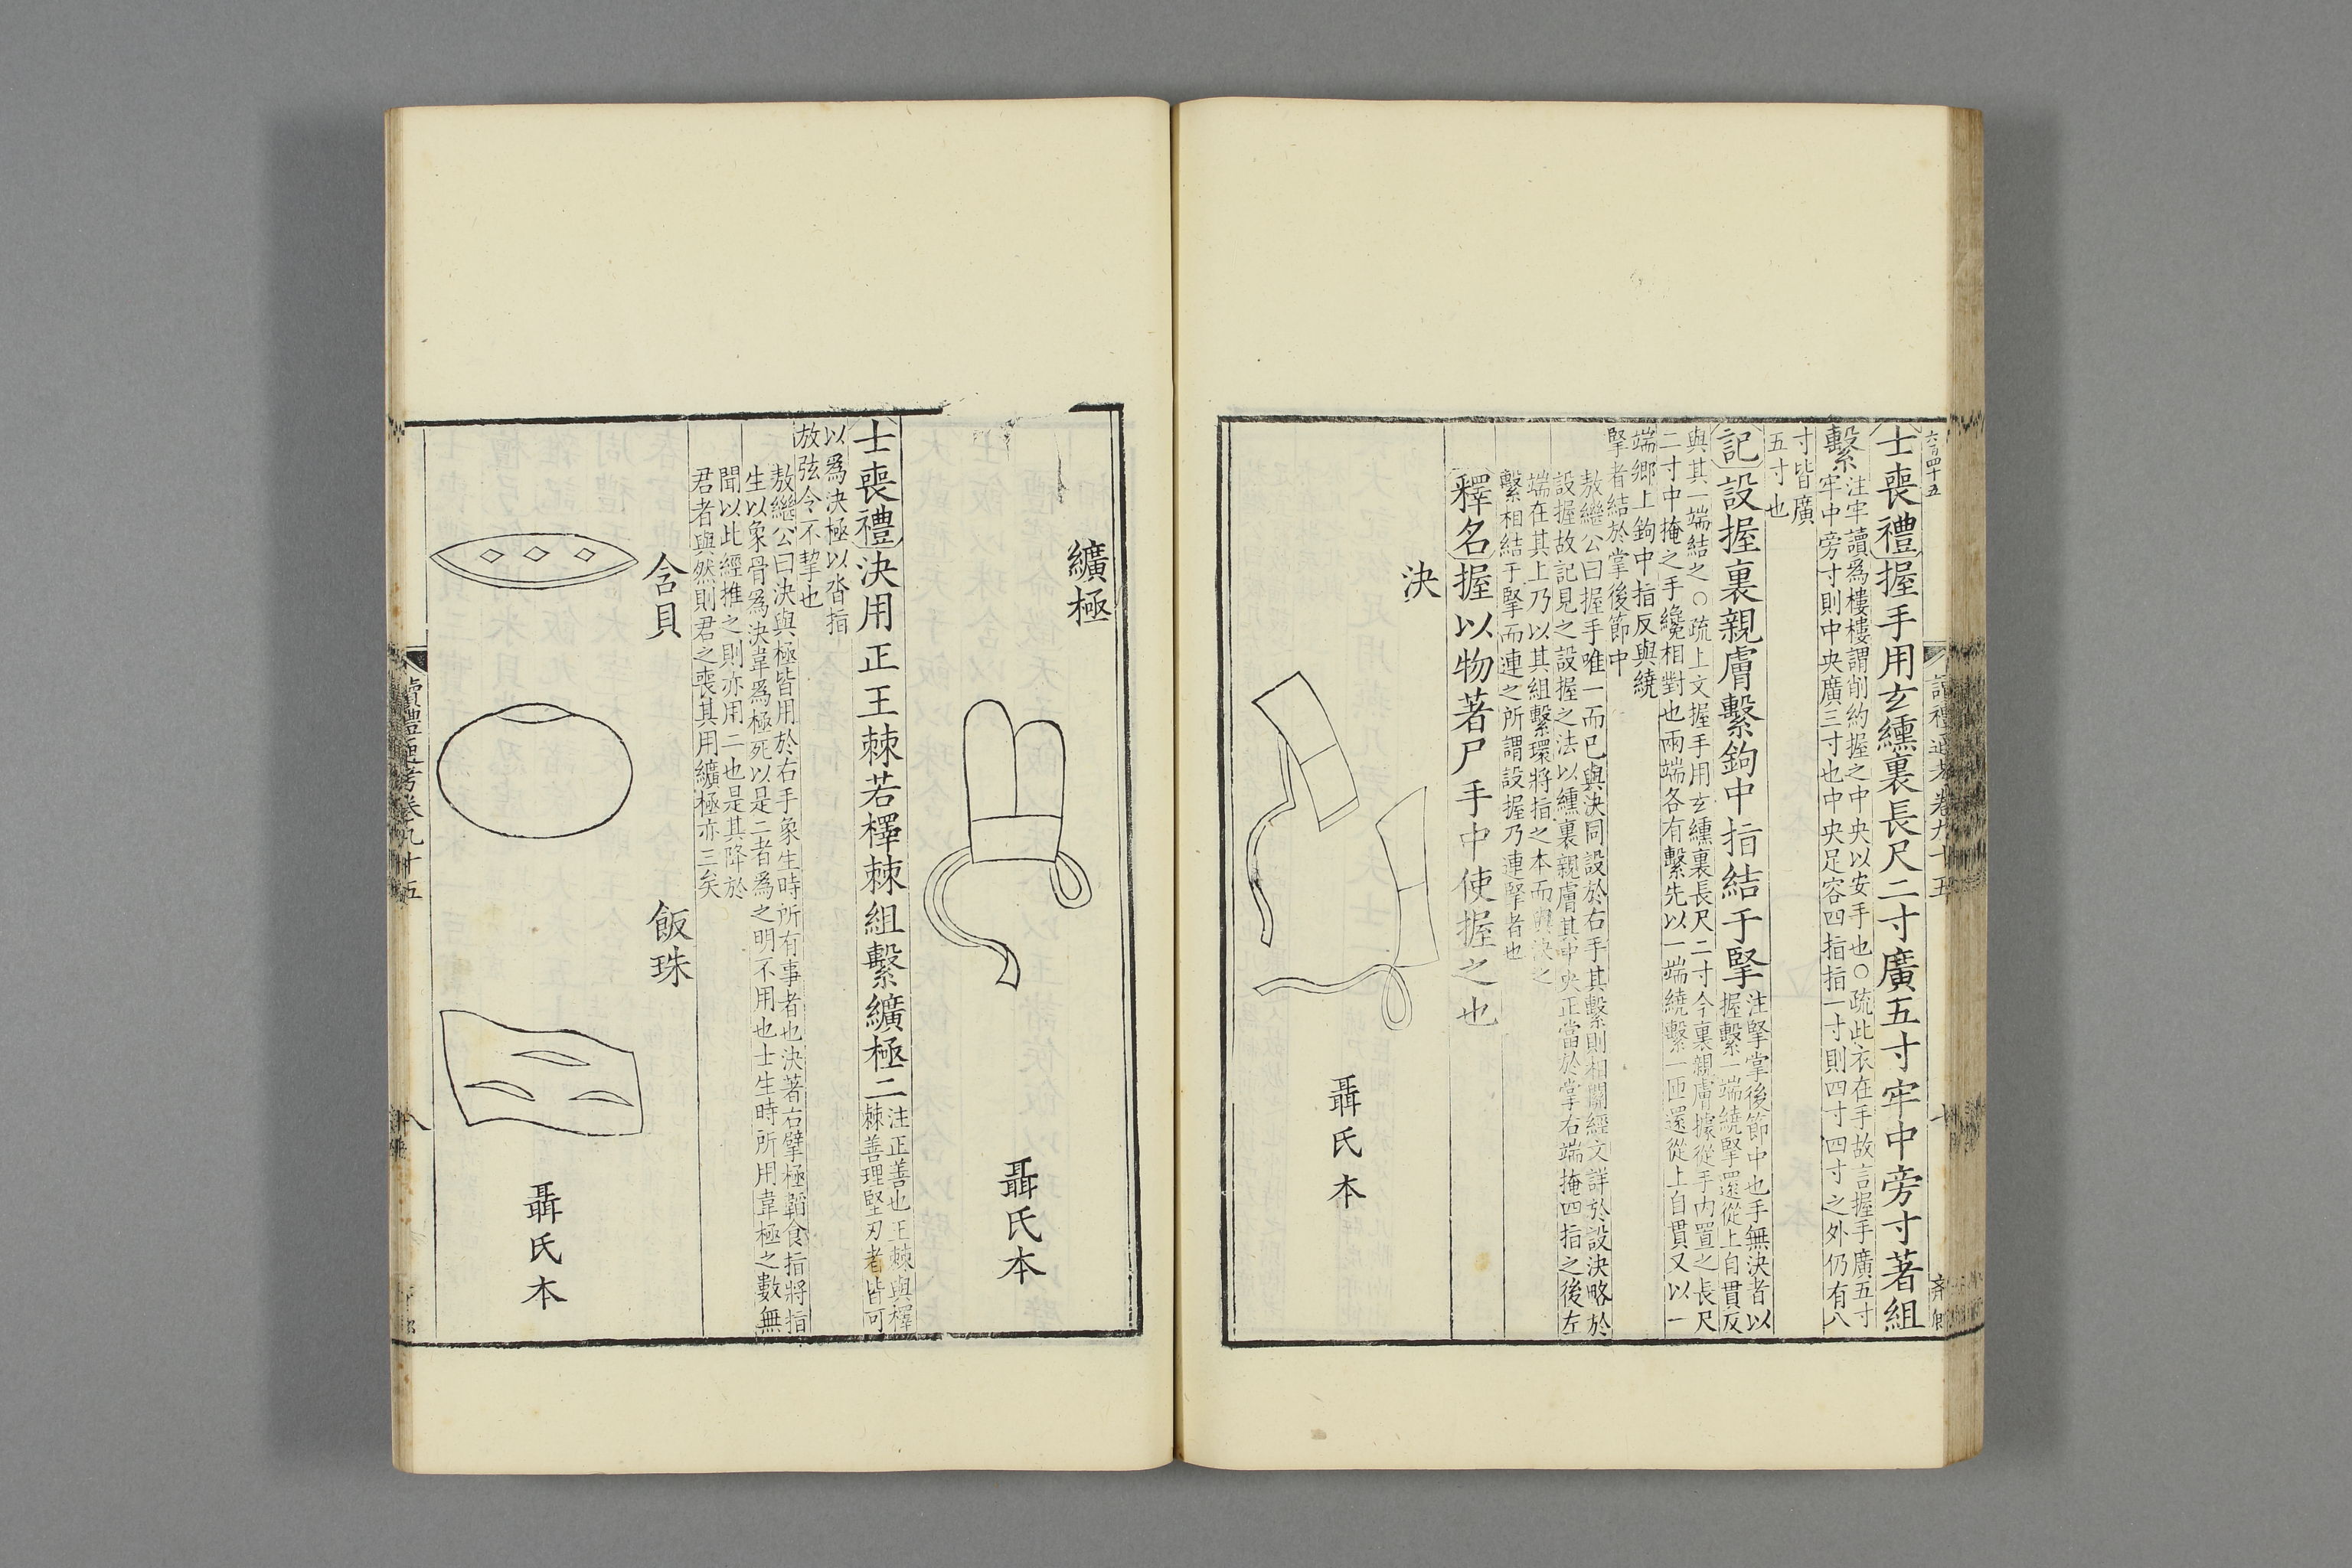 六百四十五
士喪禮握手用玄纁裏長尺二寸廣五寸牢中旁寸著組
繫
注牢讀爲樓樓謂削約握之中央以安手也○疏此衣在手故言握手廣五寸
牢中旁寸則中央廣三寸也中央足容四指指一寸則四寸四寸之外仍有八
寸皆廣
五寸也
記設握裏親膚繫鉤中指結于掔
注掔掌後節中也手無決者以
握繫一端繞掔還從上自貫反
與其一端結之○疏上文握手用玄纁裏長尺二寸今裏親膚據從手內置之長尺
二寸中掩之手纔相對也兩端各有繫先以一端繞繫一匝還從上自貫又以一
端鄉上鉤中指反與繞
掔者結於掌後節中
敖繼公曰握手唯一而已與決同設於右手其繫則相關經文詳於設決略於
設握故記見之設握之法以纁裏親膚其中央正當於掌右端掩四指之後左
端在其上乃以其組繫環將指之本而與決之
繫相結于掔而連之所謂設握乃連掔者也
釋名握以物著尸手中使握之也
決
聶氏本
讀禮通考卷九十五
七
纊極
聶氏本
士喪禮決用正王棘若檡棘組繫纊極二
注正善也王棘與檡
棘善理堅刃者皆可
以爲決極以沓指
放弦令不挈也
敖繼公曰決與極皆用於右手象生時所有事者也決著右擘極韜食指將指
生以象骨爲決韋爲極死以是二者爲之明不用也士生時所用韋極之數無
聞以此經推之則亦用二也是其降於
君者與然則君之喪其用纊極亦三矣
含貝
飯珠
聶氏本
讀禮通考卷九十五
八